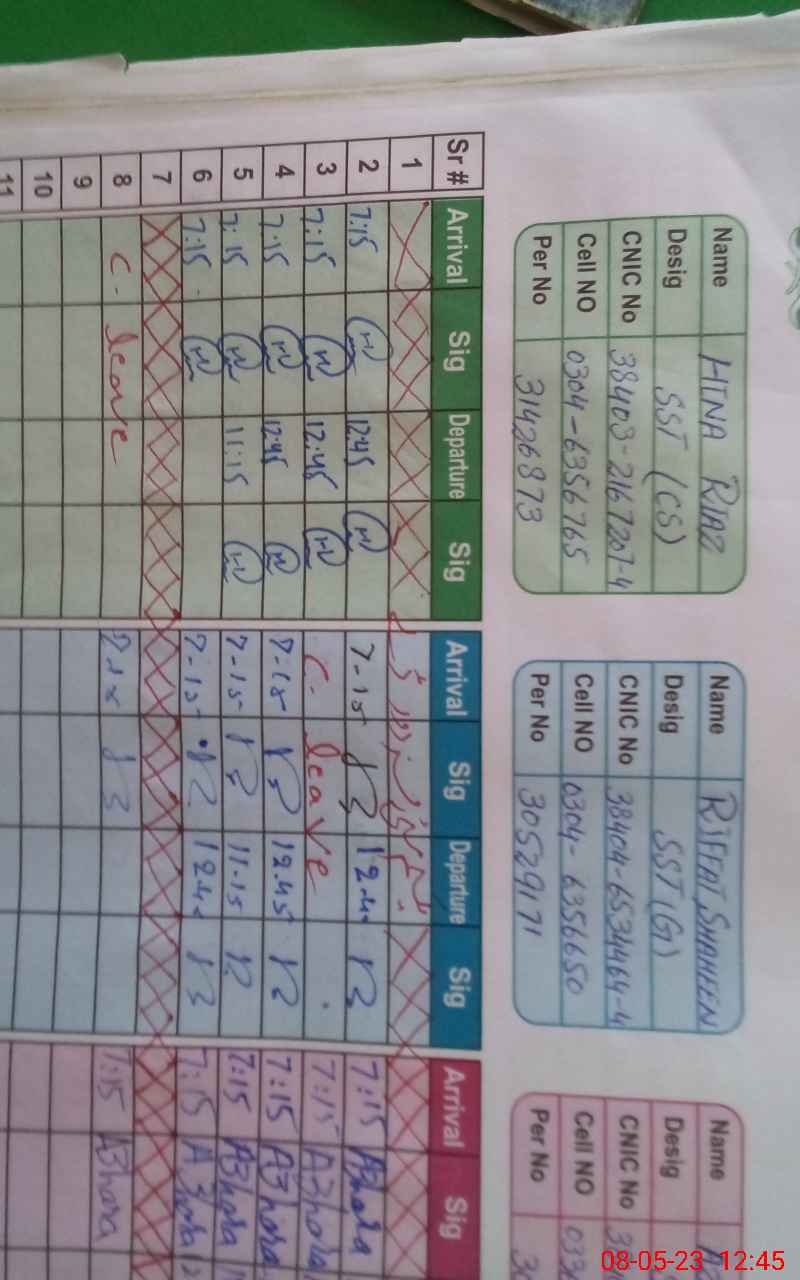 Name HINA RIAZ
Desig SST (CS)
CNIC No 38403-2167207-4
Cell NO 0304-6356765
Per No 31426873
Name RIFFAT SHAHEEN
Desig SST (G)
CNIC No 38404-6534464-4
Cell NO 0304-6356650
Per No 30529171
Name
Desig
CNIC No
Cell NO 033
Per No
Sr # Arrival Sig Departure Sig Arrival Sig Departure Sig Arrival Sig
1
2 7:15 12:45 7-15 7:15 A3hora
3 7:15 12:45 C- leave 7:15 A3hora
4 7:15 12:45 7:15 12.45 7:15 A3hora
5 7:15 11:15 7-15 11-15 7:15 A3hora
6 7:15 7-15 7:15 A3hora
7
8 C- leave 7:15 A3hora
9
10
11
08-05-23 12:45